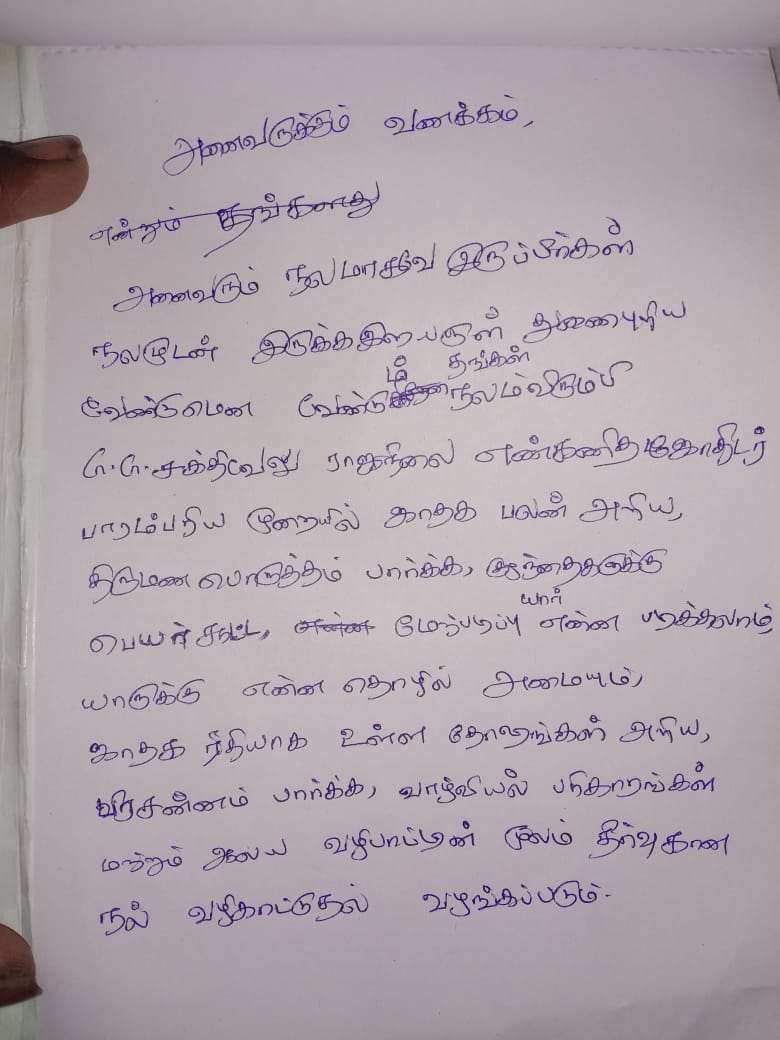 அனைவருக்கும் வணக்கம்,
என்றும் தங்களது
அனைவரும் நலமாகவே இருப்பீர்கள்
நலமுடன் இருக்க இறையருள் துணைபுரிய
வேண்டுமென வேண்டும் தங்கள் நலம்விரும்பி
G.G.சக்திவேலு ராஜநிலை எண்கணித ஜோதிடர்
பாரம்பரிய முறையில் ஜாதக பலன் அறிய,
திருமண பொருத்தம் பார்க்க, குழந்தைகளுக்கு
பெயர் சூட்ட, என்ன மேற்படிப்பு யார் என்ன படிக்கலாம்,
யாருக்கு என்ன தொழில் அமையும்,
ஜாதக ரீதியாக உள்ள தோஷங்கள் அறிய,
பிரசன்னம் பார்க்க, வாழ்வியல் பரிகாரங்கள்
மற்றும் ஆலய வழிபாட்டின் மூலம் தீர்வுகான
நல் வழிகாட்டுதல் வழங்கப்படும்.